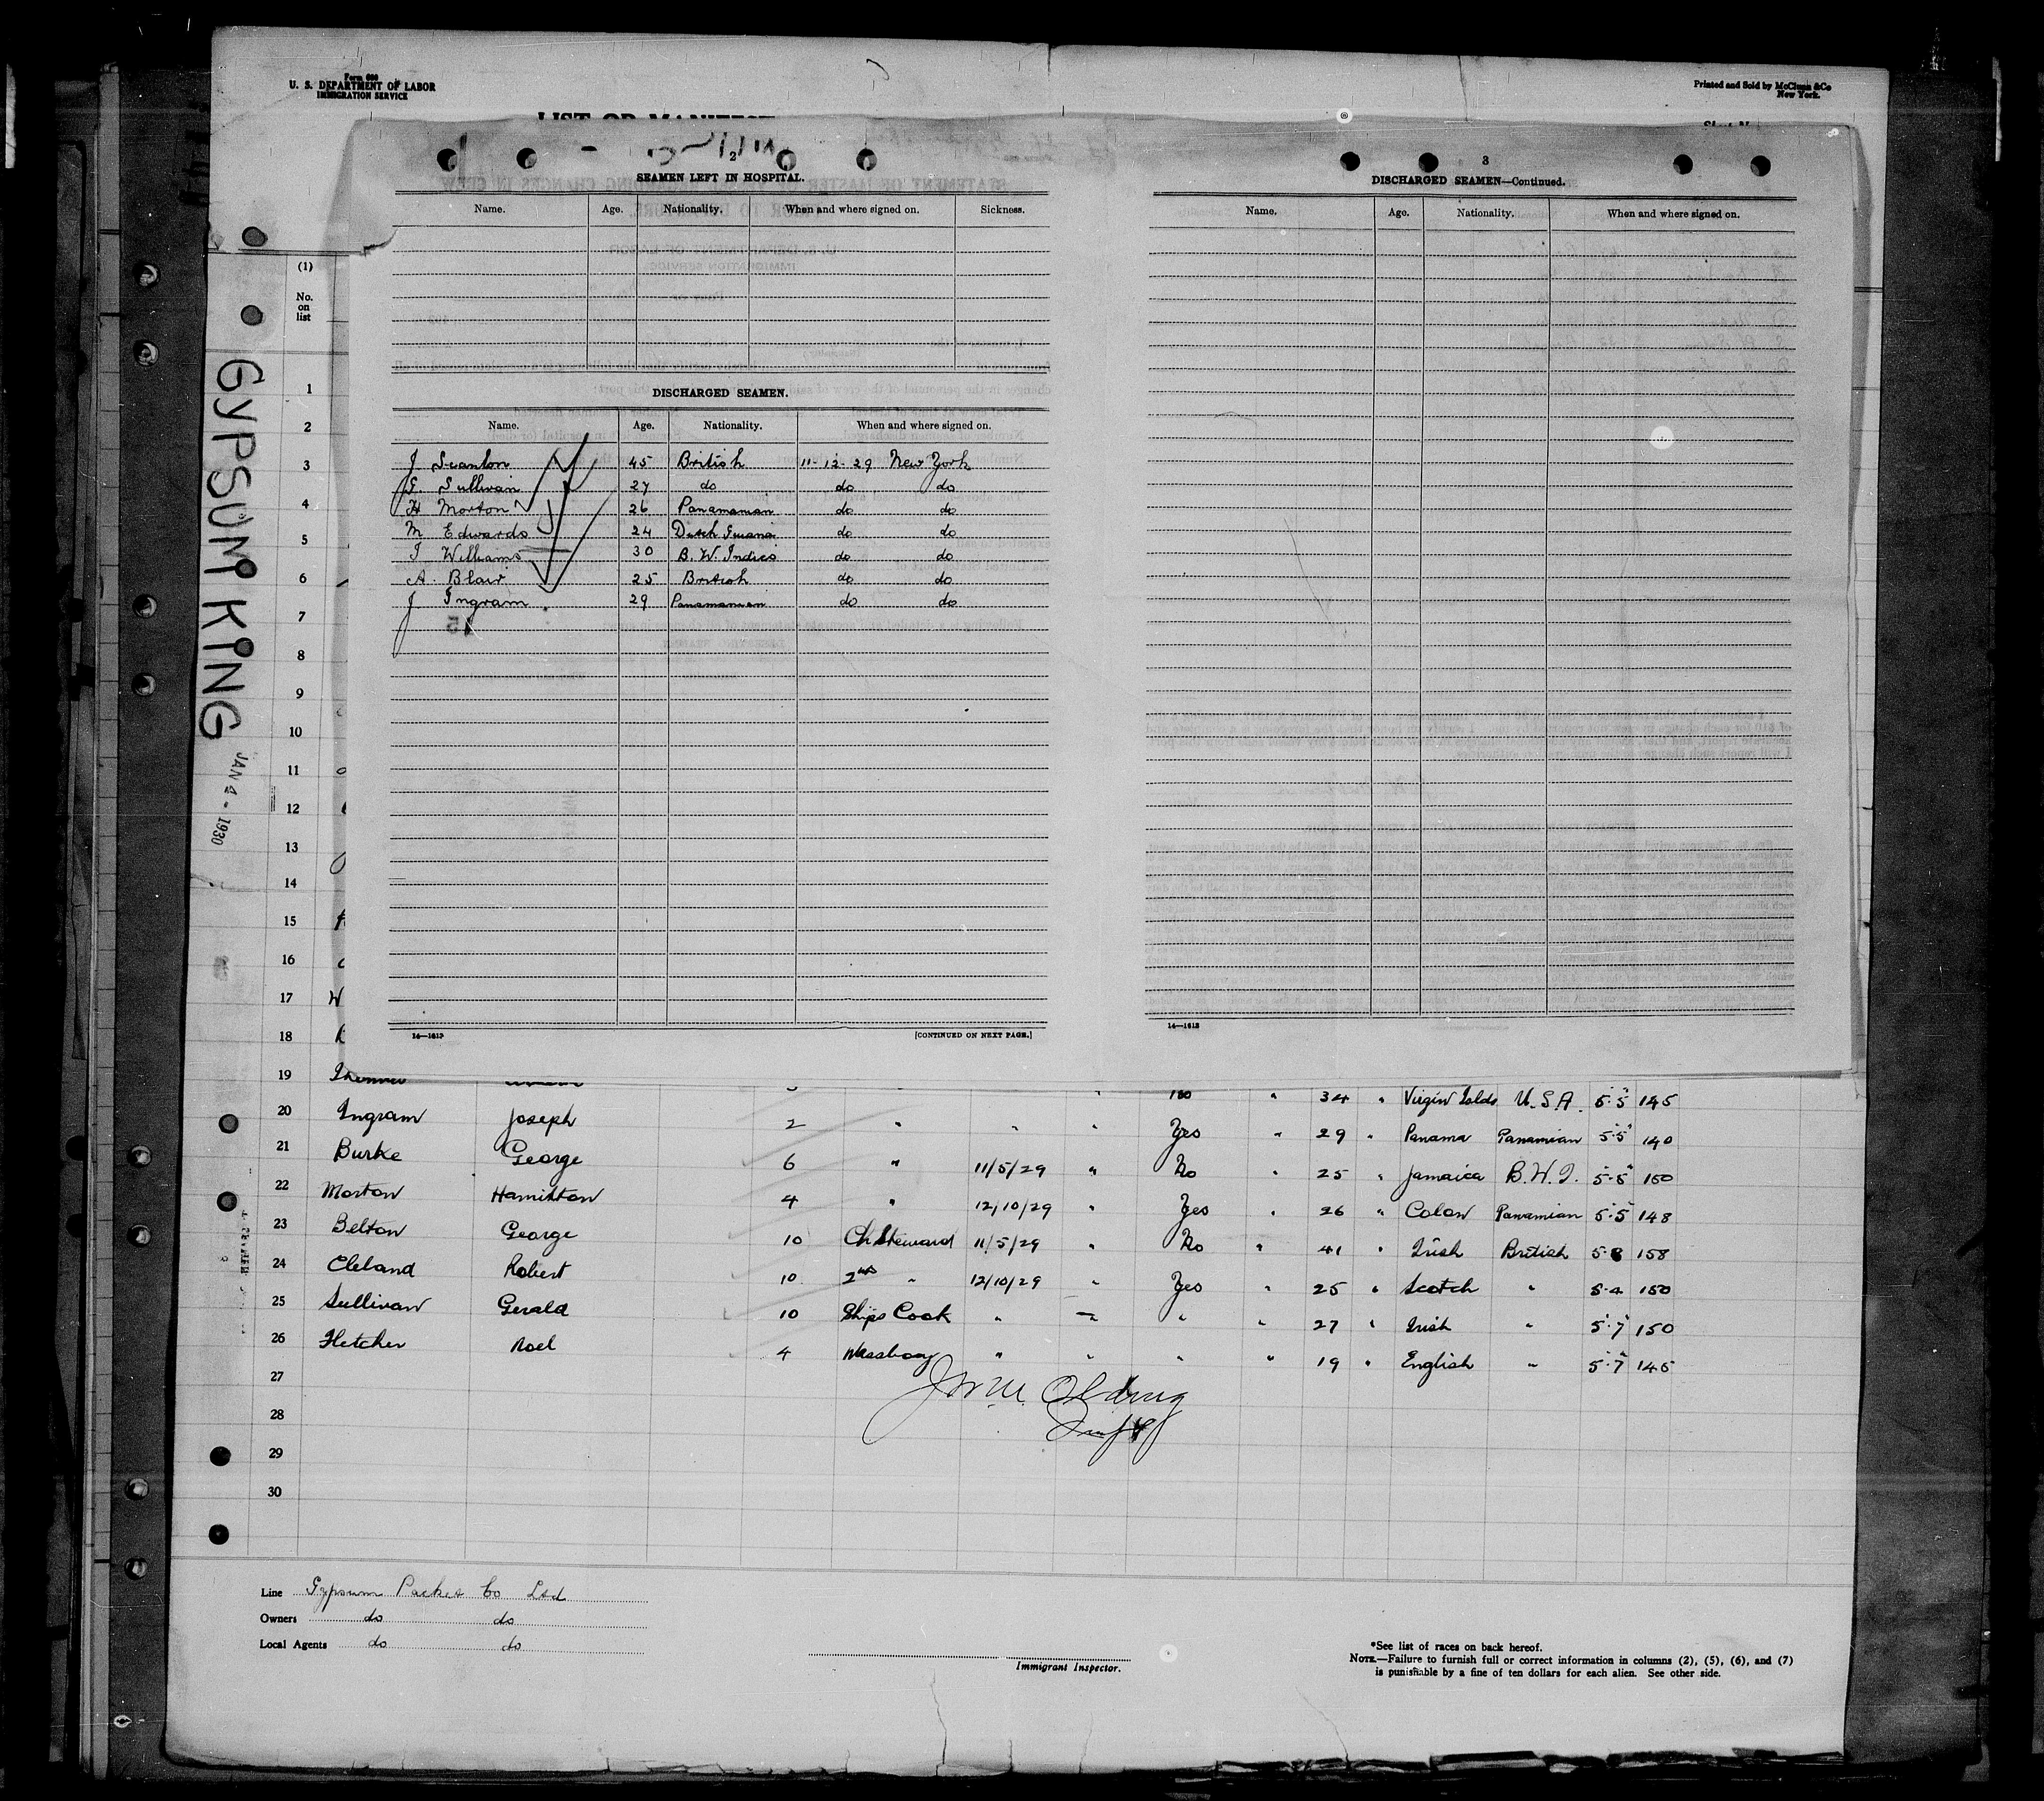 Form 680
U. S. DEPARTMENT OF LABOR
IMMIGRATION SERVICE
Printed and Sold by McClunn & Co
New York.
LIST OR MANIFEST
GYPSUM KING
JAN 4 - 1930
(1)
No.
on
list
1
2
3
4
5
6
7
8
9
10
11
12
13
14
15
16
17
18
2
SEAMEN LEFT IN HOSPITAL.
Name. Age. Nationality. When and where signed on. Sickness.
DISCHARGED SEAMEN.
Name. Age. Nationality. When and where signed on.
J Scanlon 45 British 11-12-29 New York
G. Sullivan 27 do do do
H Morton 26 Panamanian do do
M Edwards 24 Dutch Guiana do do
I Williams 30 B. W. Indies do do
A. Blair 25 British do do
J Ingram 29 Panamanian do do
14—1613 [CONTINUED ON NEXT PAGE.]
3
DISCHARGED SEAMEN—Continued.
Name. Age. Nationality. When and where signed on.
14—1613
19 No " 34 " Virgin Islds U.S.A. 5.5 145
20 Ingram Joseph 2 " " " Yes " 29 " Panama Panamian 5.5 140
21 Burke George 6 " 11/5/29 " No " 25 " Jamaica B.W.I. 5.5 150
22 Morton Hamilton 4 " 12/10/29 " Yes " 26 " Colon Panamian 5.5 148
23 Belton George 10 Ch Steward 11/5/29 " No " 41 " Irish British 5.8 158
24 Cleland Robert 10 2nd " 12/10/29 " Yes " 25 " Scotch " 5.4 150
25 Sullivan Gerald 10 Ships Cook " " " " 27 " Irish " 5.7 150
26 Fletcher Noel 4 Messboy " " " " 19 " English " 5.7 145
27
28
29
30
Line Gypsum Packet Co Ltd
Owners do do
Local Agents do do
Immigrant Inspector.
*See list of races on back hereof.
NOTE.—Failure to furnish full or correct information in columns (2), (5), (6), and (7)
is punishable by a fine of ten dollars for each alien. See other side.